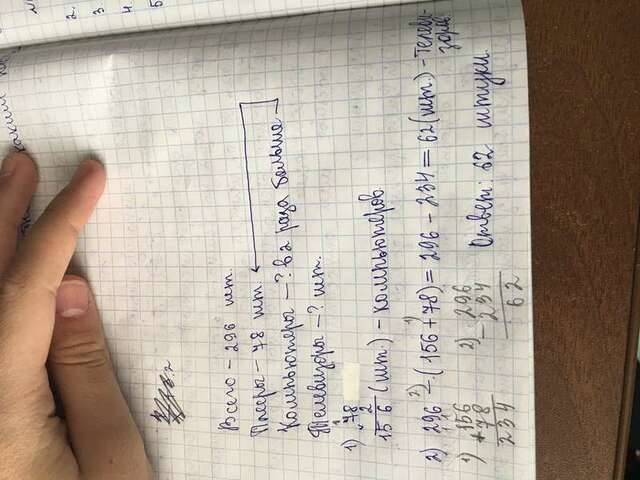 каким
№
2.
3
4.
5
Всего – 296 шт.
Плееры – 78 шт.
Компьютеры – ? в 2 раза больше
Телевизоры – ? шт.
1) 1
78
× 2
156 (шт.) – компьютеров
2) 1)
2) 296 – (156 + 78) = 296 – 234 = 62 (шт.) – Телеви-
зоров
1) 156
+ 78
234
2) 296
– 234
62
Ответ: 62 штуки.